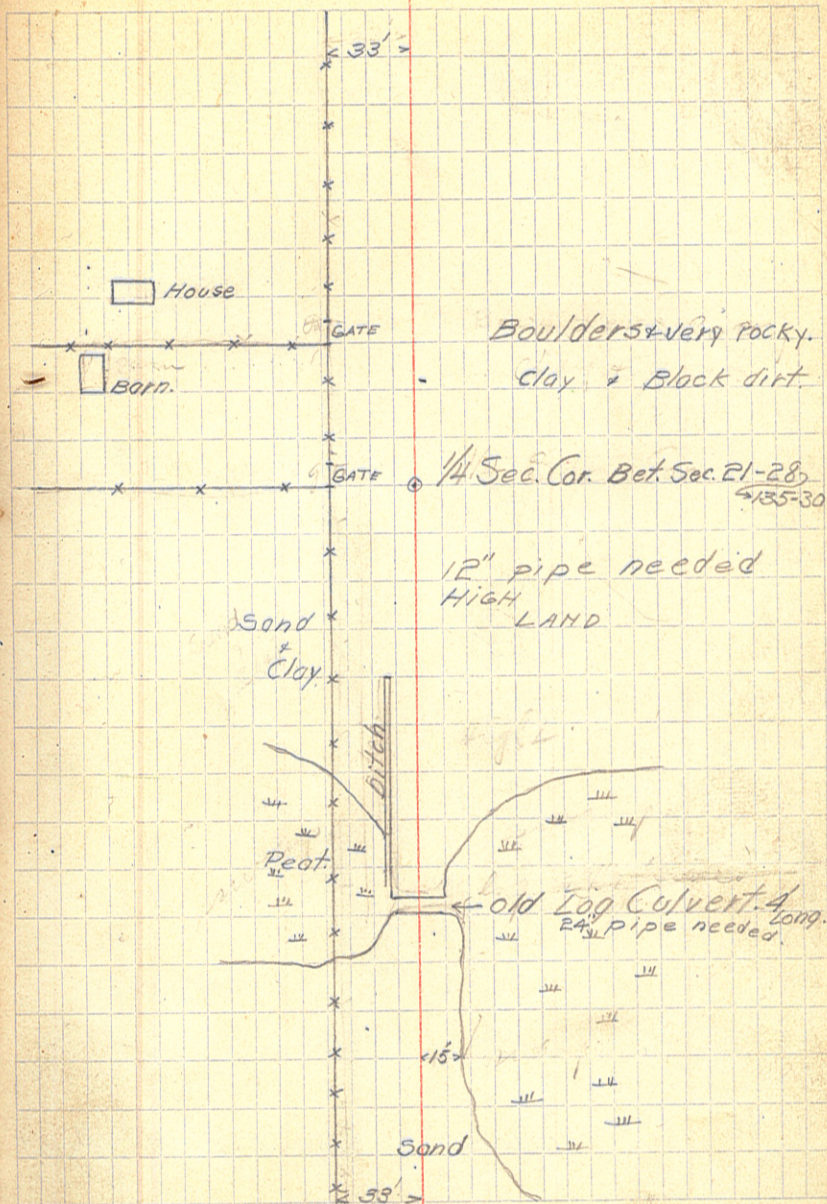 33'
House
GATE
Boulders & very rocky.
Barn.
Clay & Black dirt.
GATE
1/4 Sec. Cor. Bet. Sec. 21-28,
135-30
12" pipe needed
HIGH
LAND
Sand
&
Clay
Ditch
Peat.
old Log Culvert. 4' Long.
24" pipe needed.
15'
Sand
33'